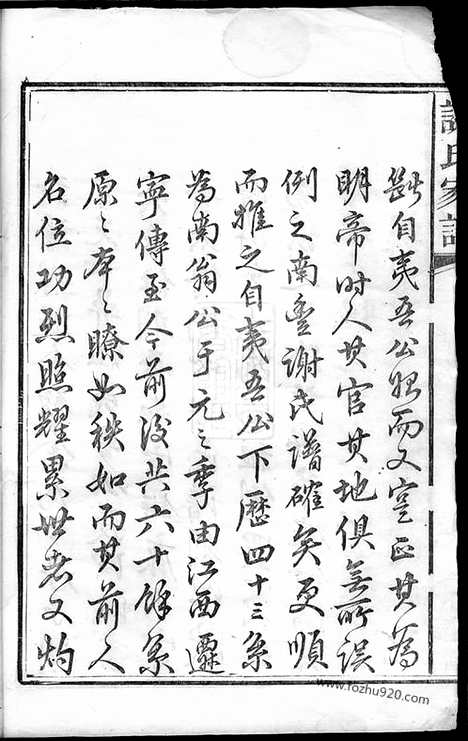 謝氏家譜
斷自夷吾公始而又寔正其為
明帝時人其官其地俱無所誤
例之南豐謝氏譜確矣更順
而推之自夷吾公下歷四十三系
為南翁公于元之季由江西遷
寧傳至今前後共六十餘系
原〻本〻瞭如秩如而其前人
名位功烈照耀累世者又灼
www.fozhu920.com